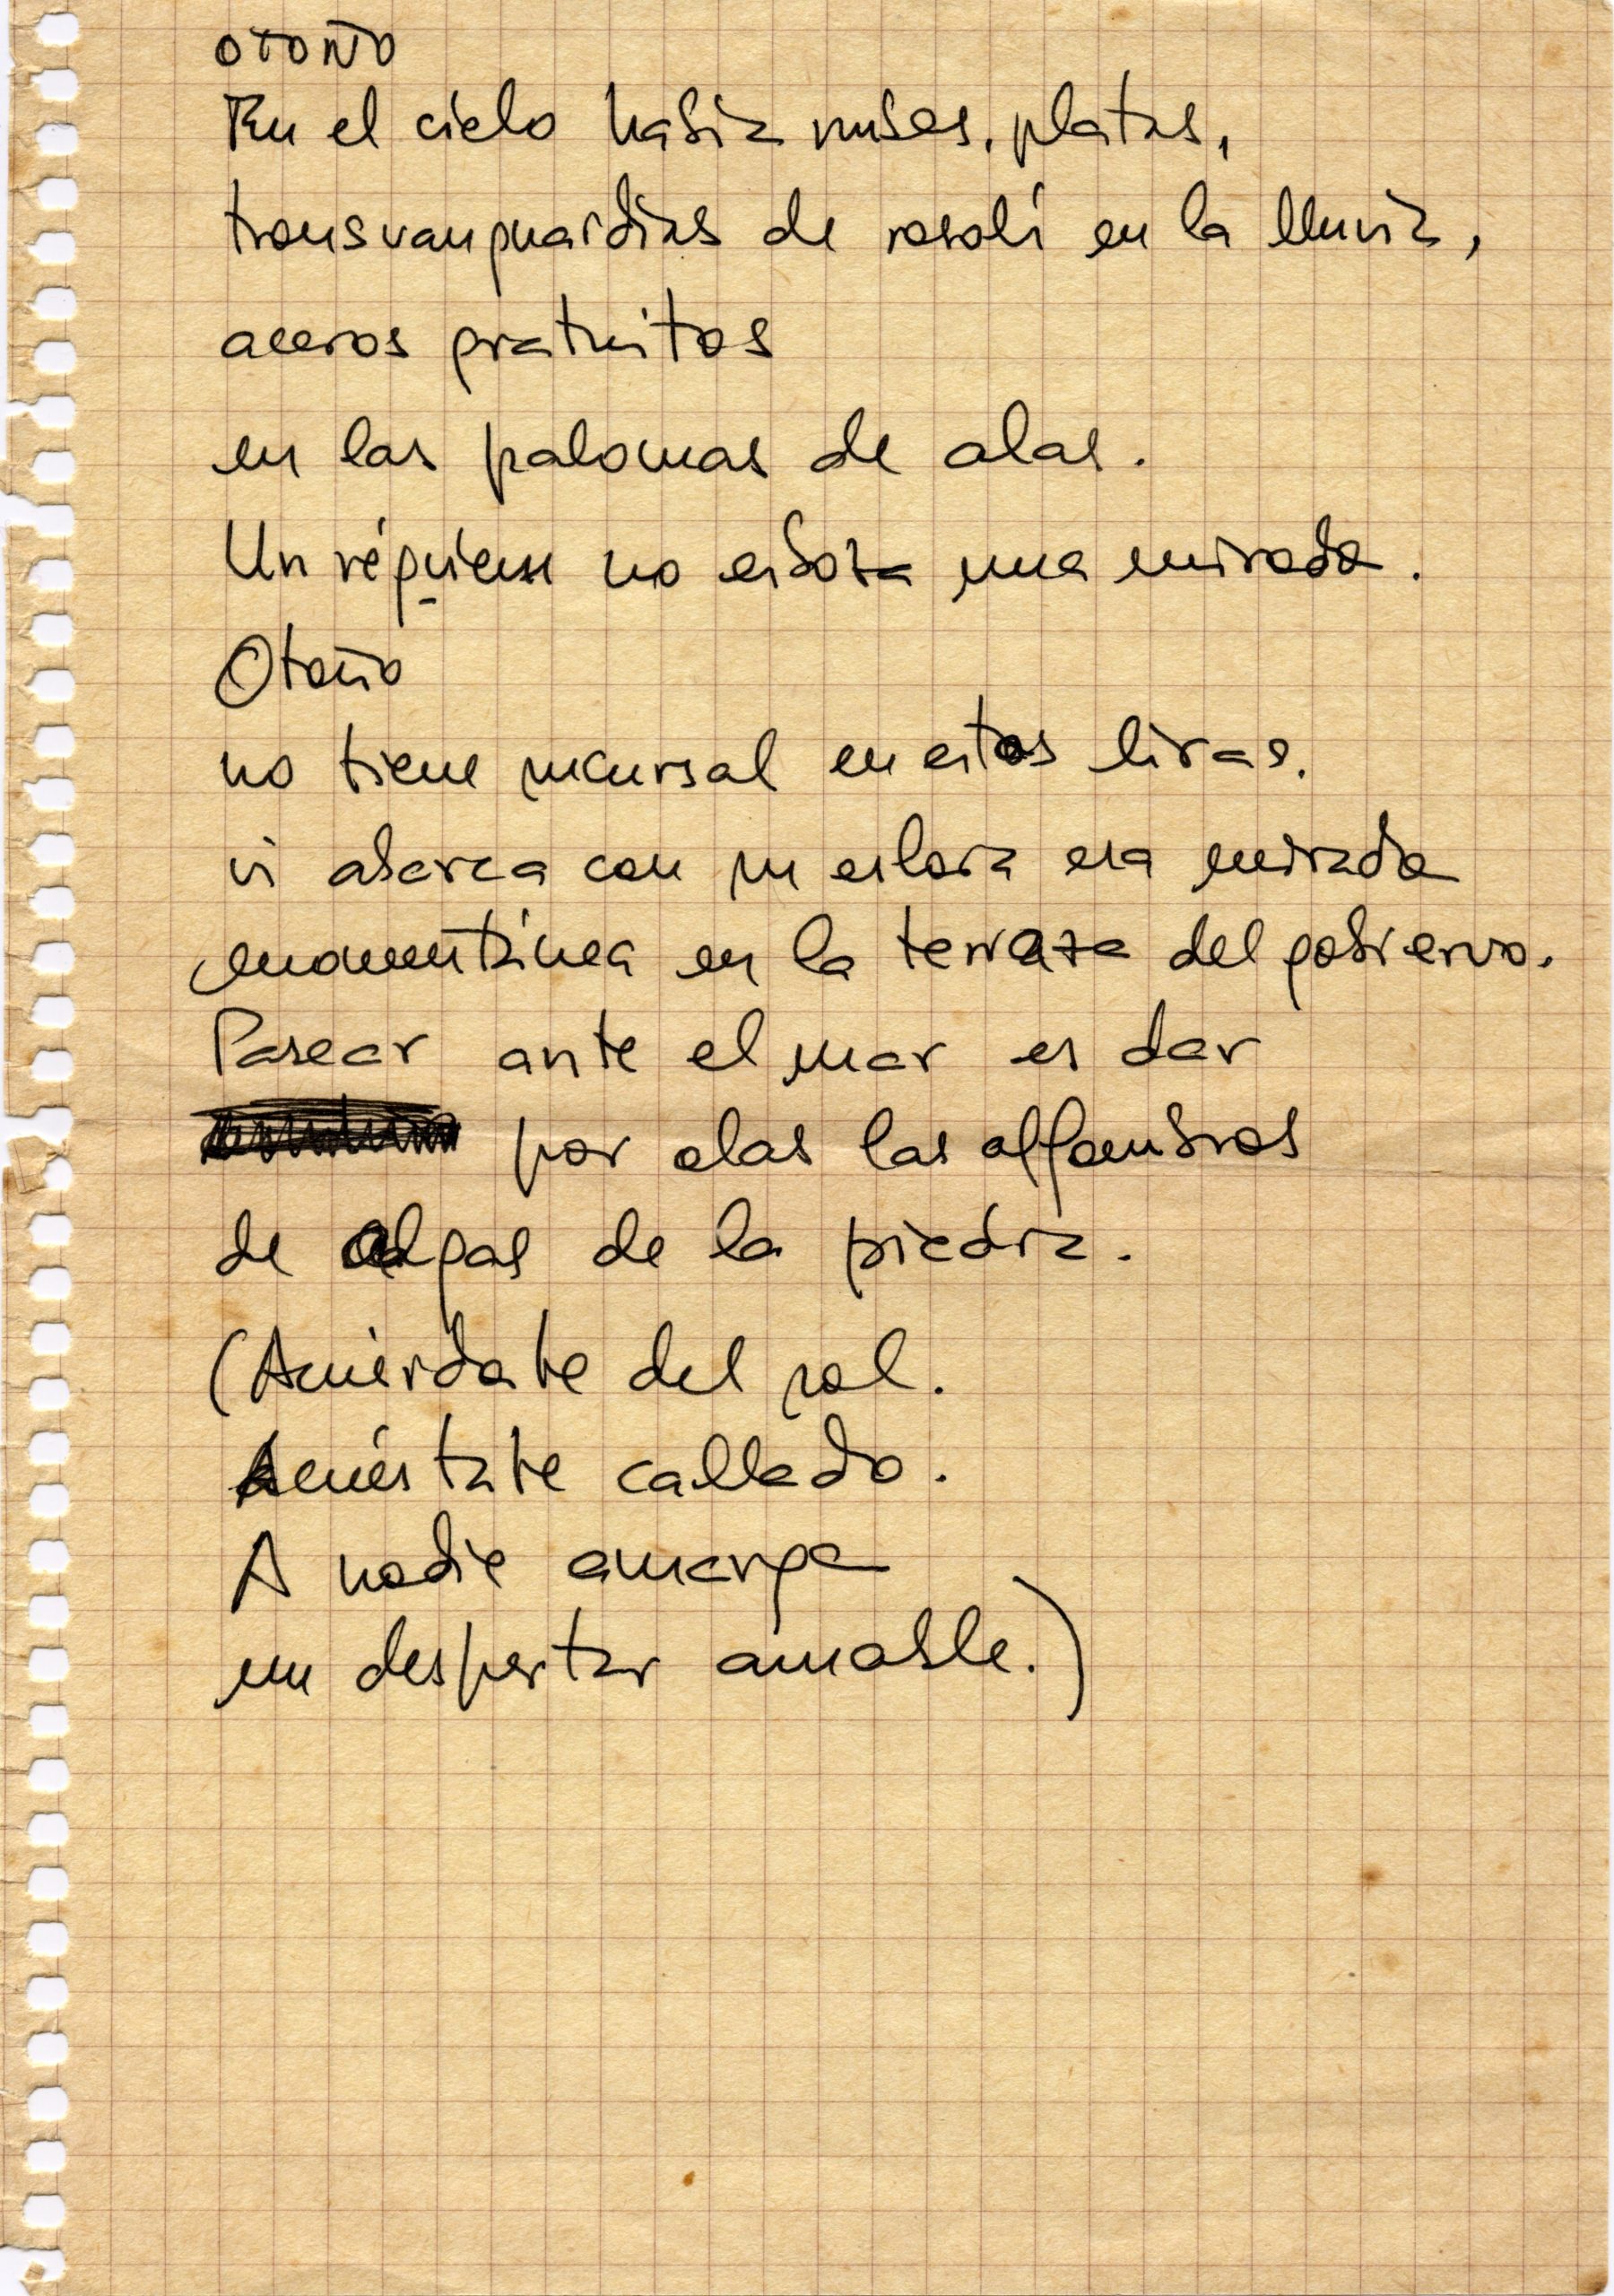 OTOÑO
En el cielo había nubes, platas,
transvanguardias de rosoli en la lluvia,
aceros gratuitos
en las palomas de alas.
Un réquiem no esboza una mirada.
Otoño
no tiene sucursal en estas liras.
ni abarca con su esloria esa mirada
momentánea en la terraza del gobierno.
Pasear ante el mar es dar
por olas las alfombras
de algas de la piedra.
(Acuérdate del sol.
Acuéstate callado.
A nadie amarga
un despertar amable.)